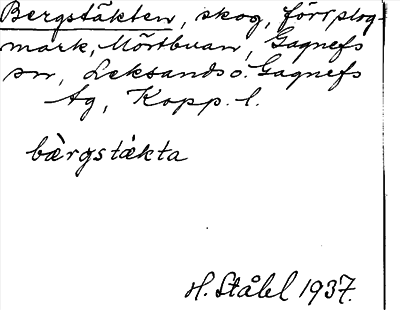 Bergstäkten, skog, förr slog-
mark, Mörtbuan, Gagnefs
sn, Leksands o. Gagnefs
tg, Kopp. l.
bàrgstäkta
H. Ståhl 1937.